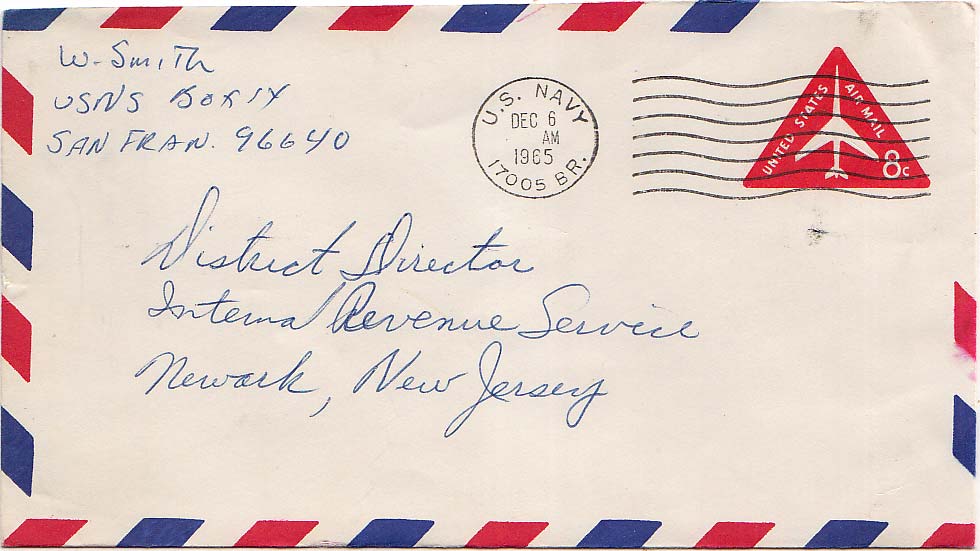 W. Smith
USNS BOX 14
SAN FRAN. 96640
U.S. NAVY
DEC 6
AM
1965
17005 BR.
UNITED STATES
AIR MAIL
8c
District Director
Internal Revenue Service
Newark, New Jersey